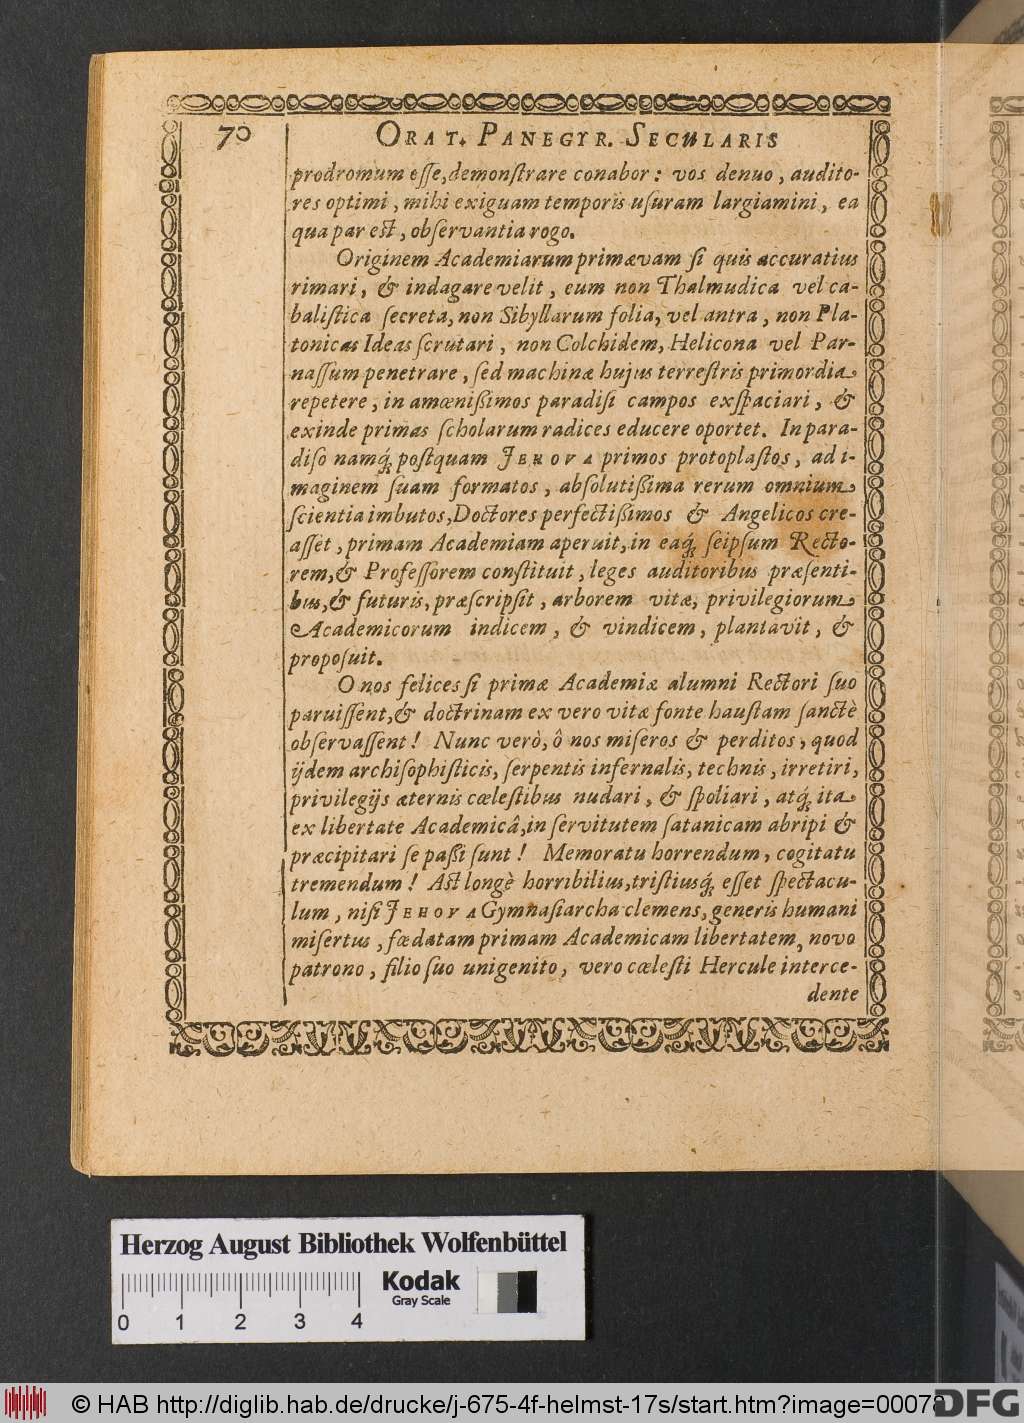 70 ORAT. PANEGYR. SECULARIS
prodromum eſſe, demonſtrare conabor: vos denuo, audito-
res optimi, mihi exiguam temporis uſuram largiamini, ea
qua par est, obſervantia rogo.
Originem Academiarum primævam ſi quis accuratius
rimari, & indagare velit, eum non Thalmudica vel ca-
baliſtica ſecreta, non Sibyllarum folia, vel antra, non Pla-
tonicas Ideas ſcrutari, non Colchidem, Helicona vel Par-
naſſum penetrare, ſed machinæ hujus terreſtris primordia
repetere, in amœnißimos paradiſi campos exſpaciari, &
exinde primas ſcholarum radices educere oportet. In para-
diſo namq́; poſtquam JEHOVA primos protoplaſtos, ad i-
maginem ſuam formatos, abſolutißima rerum omnium
ſcientia imbutos, Doctores perfectißimos & Angelicos cre-
aſſet, primam Academiam aperuit, in eaq́; ſeipſum Recto-
rem, & Profeſſorem conſtituit, leges auditoribus præſenti-
bus, & futuris, præſcripſit, arborem vitæ, privilegiorum
Academicorum indicem, & vindicem, plantavit, &
propoſuit.
O nos felices ſi primæ Academiæ alumni Rectori ſuo
paruiſſent, & doctrinam ex vero vitæ fonte hauſtam ſanctè
obſervaſſent! Nunc verò, ô nos miſeros & perditos, quod
ijdem archiſophiſticis, ſerpentis infernalis, technis, irretiri,
privilegijs æternis cœleſtibus nudari, & ſpoliari, atq́; ita
ex libertate Academicâ, in ſervitutem ſatanicam abripi &
præcipitari ſe paßi ſunt! Memoratu horrendum, cogitatu
tremendum! Ast longè horribilius, triſtiusq́; eſſet ſpectacu-
lum, niſi JEHOVA Gymnaſiarcha clemens, generis humani
miſertus, fœdatam primam Academicam libertatem, novo
patrono, filio ſuo unigenito, vero cœleſti Hercule interce-
dente
Herzog August Bibliothek Wolfenbüttel
Kodak
Gray Scale
0 1 2 3 4
© HAB http://diglib.hab.de/drucke/j-675-4f-helmst-17s/start.htm?image=00078
DFG